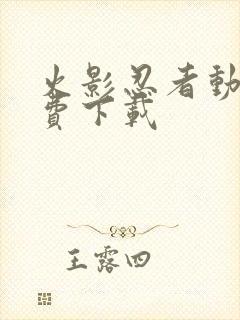 火影忍者動
費下載
王露四